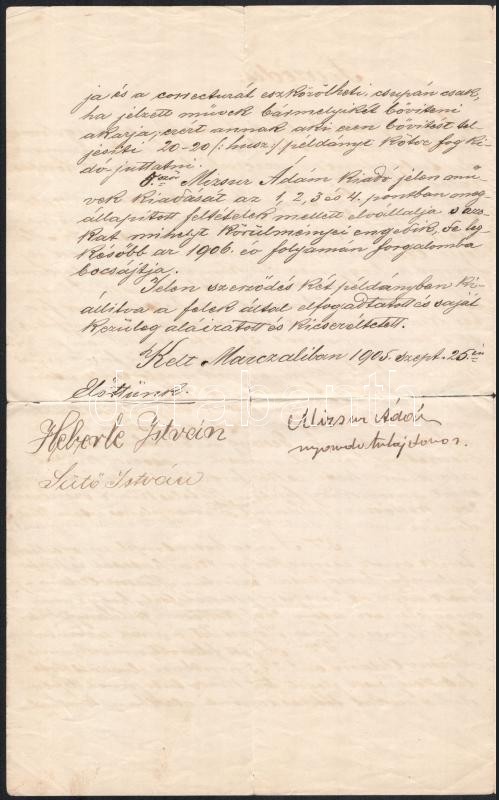 ja és a correcturat eszközölheti, csupán csak,
ha jelzett művek bármelyikét bővíteni
akarja, ezért annak aki ezen bővitést tel-
jesiti 20-20 /: husz :/ példányt kötve fog ki-
dó juttatni.
5.ször Mizsur Ádám kiadó jelen mü-
vek kiadását az 1, 2, 3 és 4. pontban meg-
állapított feltételek mellett elvállalja s azo-
kat mihelyt körülményei engedik, de leg-
később az 1906. év folyamán forgalomba
bocsájtja.
Jelen szerződés két példányban ki-
állitva a felek által elfogadtatott és saját
kezüleg aláiratott és kicseréltetett.
Kelt Marczaliban 1905. szept. 25 én
Előttünk.
Heberle István
Mizsur Ádám
nyomda tulajdonos.
Sütő István
darabanth